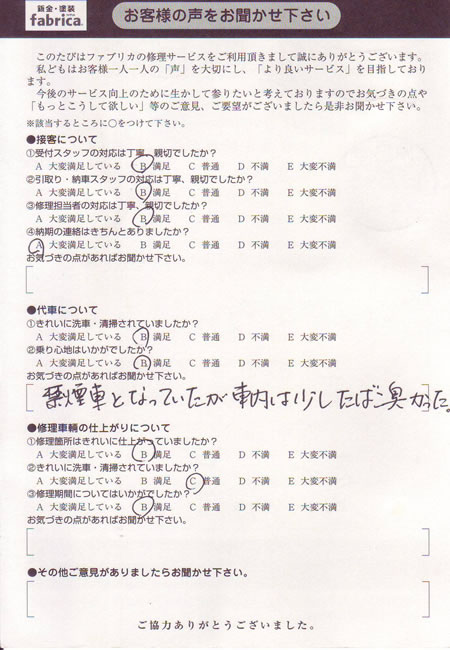 鈑金・塗装
fabrica.
お客様の声をお聞かせ下さい
このたびはファブリカの修理サービスをご利用頂きまして誠にありがとうございます。
私どもはお客様一人一人の「声」を大切にし、「より良いサービス」を目指しており
ます。
今後のサービス向上のために生かして参りたいと考えておりますのでお気づきの点や
「もっとこうして欲しい」等のご意見、ご要望がございましたら是非お聞かせ下さい。
※該当するところに○をつけて下さい。
●接客について
①受付スタッフの対応は丁寧、親切でしたか?
A 大変満足している B 満足 C 普通 D 不満 E 大変不満
②引取り・納車スタッフの対応は丁寧、親切でしたか?
A 大変満足している B 満足 C 普通 D 不満 E 大変不満
③修理担当者の対応は丁寧、親切でしたか?
A 大変満足している B 満足 C 普通 D 不満 E 大変不満
④納期の連絡はきちんとありましたか?
A 大変満足している B 満足 C 普通 D 不満 E 大変不満
お気づきの点があればお聞かせ下さい。
●代車について
①きれいに洗車・清掃されていましたか?
A 大変満足している B 満足 C 普通 D 不満 E 大変不満
②乗り心地はいかがでしたか?
A 大変満足している B 満足 C 普通 D 不満 E 大変不満
お気づきの点があればお聞かせ下さい。
禁煙車となっていたが車内は少したば臭かった。
●修理車輌の仕上がりについて
①修理箇所はきれいに仕上がっていましたか?
A 大変満足している B 満足 C 普通 D 不満 E 大変不満
②きれいに洗車・清掃されていましたか?
A 大変満足している B 満足 C 普通 D 不満 E 大変不満
③修理期間についてはいかがでしたか?
A 大変満足している B 満足 C 普通 D 不満 E 大変不満
お気づきの点があればお聞かせ下さい。
●その他ご意見がありましたらお聞かせ下さい。
ご協力ありがとうございました。